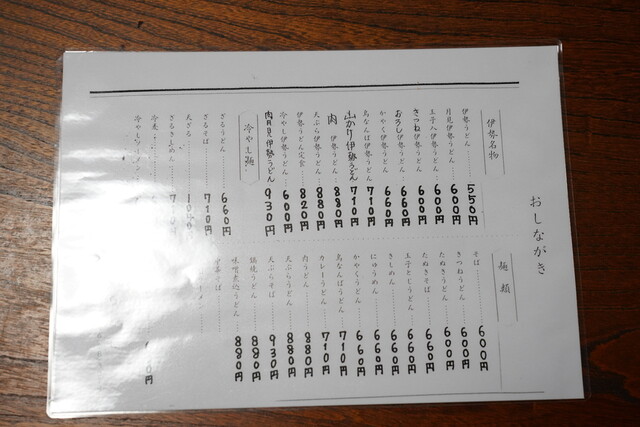 おしながき
伊勢名物
伊勢うどん 550円
月見伊勢うどん 600円
玉子入伊勢うどん 600円
きつね伊勢うどん 600円
おろし伊勢うどん 660円
かやく伊勢うどん 660円
鳥なんば伊勢うどん 710円
山かけ伊勢うどん 710円
肉 伊勢うどん 880円
天ぷら伊勢うどん 880円
伊勢うどん定食 820円
冷やし伊勢うどん 600円
肉月見伊勢うどん 930円
冷やし麺
ざるうどん 660円
ざるそば 710円
天ざる
ざるきしめん
冷麦
麺類
そば 600円
きつねうどん 600円
たぬきうどん 600円
たぬきそば 660円
玉子とじうどん 660円
きしめん 660円
にゅうめん 660円
かやくうどん 660円
鳥なんばうどん 710円
カレーうどん 710円
肉うどん 880円
天ぷらうどん 880円
天ぷらそば 930円
鍋焼うどん 880円
味噌煮込うどん 880円
中華そば